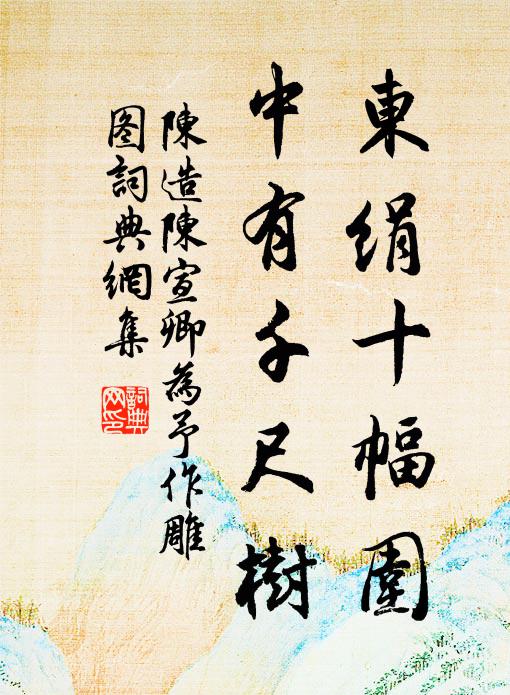 東絹十幅圍
中有千尺樹
陳造陳宣卿為予作雕
图詞典網集
詞典
网印